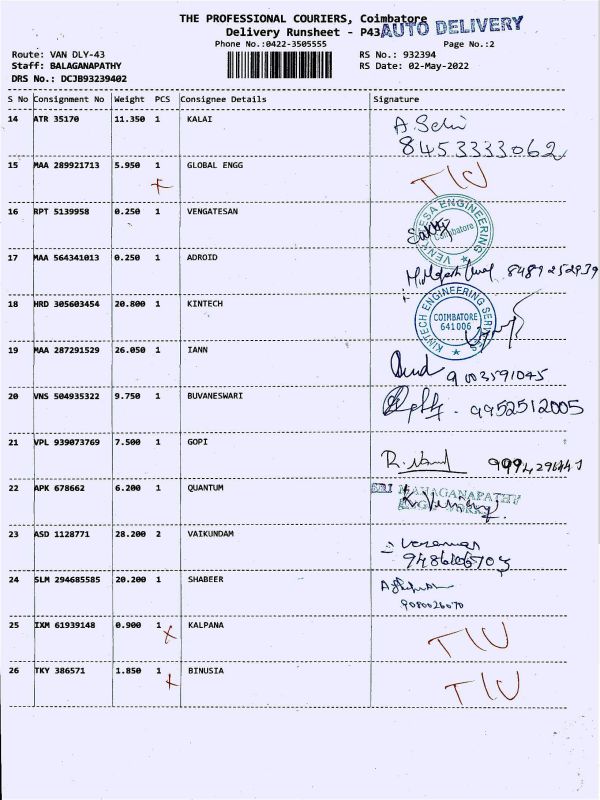 THE PROFESSIONAL COURIERS, Coimbatore
Delivery Runsheet - P43 AUTO DELIVERY
Phone No.:0422-3505555 Page No.:2
Route: VAN DLY-43 RS No.: 932394
Staff: BALAGANAPATHY RS Date: 02-May-2022
DRS No.: DCJB93239402
S No Consignment No Weight PCS Consignee Details Signature
14 ATR 35170 11.350 1 KALAI A.Selvi
8453333062
15 MAA 289921713 5.950 1 GLOBAL ENGG
16 RPT 5139958 0.250 1 VENGATESAN
ENGINEERING Coimbatore
17 MAA 564341013 0.250 1 ADROID
18 HRD 305603454 20.800 1 KINTECH
KINTECH ENGINEERING SERVICES COIMBATORE 641006
19 MAA 287291529 26.050 1 IANN
9003591045
20 VNS 504935322 9.750 1 BUVANESWARI 9952512005
21 VPL 939073769 7.500 1 GOPI
22 APK 678662 6.200 1 QUANTUM SRI MAHAGANAPATHY
23 ASD 1128771 28.200 2 VAIKUNDAM
24 SLM 294685585 20.200 1 SHABEER
9080026070
25 IXM 61939148 0.900 1 KALPANA
26 TKY 386571 1.850 1 BINUSIA